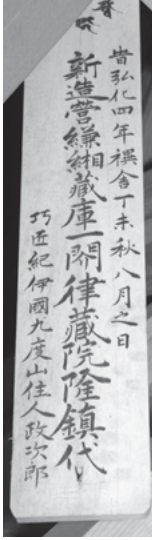 旹弘化四年禩舎丁未秋八月之日
新造營縑緗藏庫一閣律藏院隆鎮代
巧匠紀伊國九度山住人政次郎